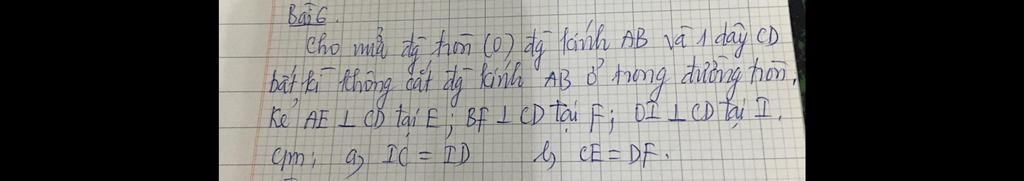 Bài 6.
Cho nửa đg tròn (O) đg kính AB và 1 dây CD
bất kì không cắt đg kính AB ở trong đường tròn.
Kẻ AE ⊥ CD tại E; BF ⊥ CD tại F; OI ⊥ CD tại I.
Cm: a, IC = ID b, CE = DF.